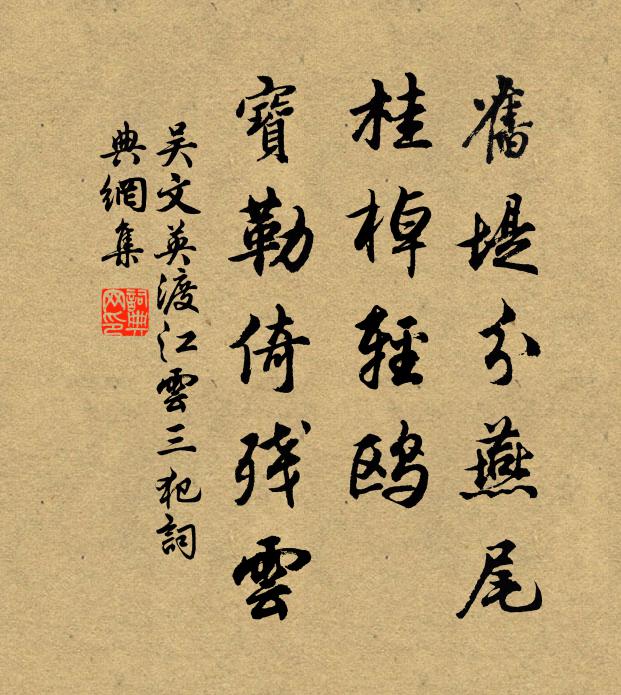 舊堤分燕尾
桂棹輕鷗
寶勒倚殘雲
吴文英渡江雲三犯詞
典網集
詞典
网印